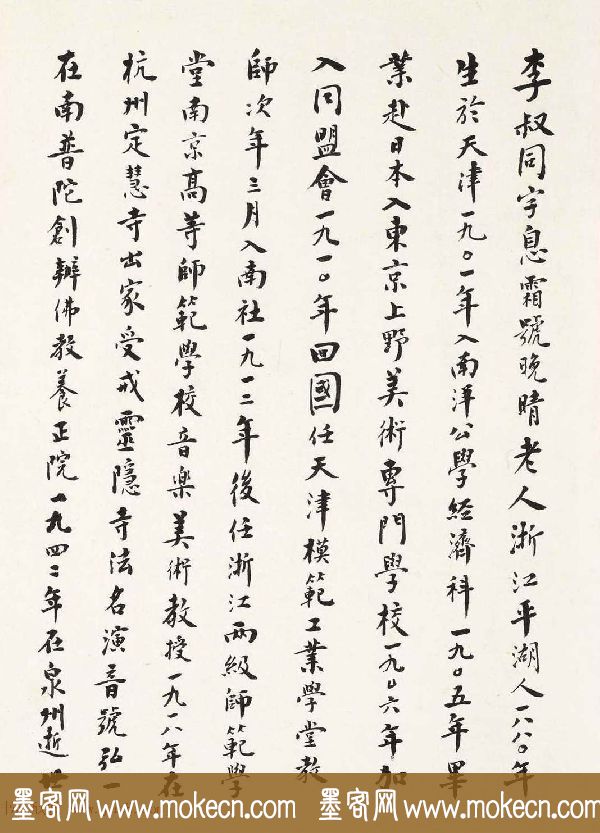 李叔同字息霜號晚晴老人浙江平湖人一八八〇年
生於天津一九〇一年入南洋公學經濟科一九〇五年畢
業赴日本入東京上野美術專門學校一九〇六年加
入同盟會一九一〇年回國任天津模範工業學堂教
師次年三月入南社一九一二年後任浙江兩級師範學
堂南京高等師範學校音樂美術教授一九一八年在
杭州定慧寺出家受戒靈隱寺法名演音號弘一
在南普陀創辦佛教養正院一九四二年在泉州逝世
墨客网 www.mokecn.com 墨客网 www.mokecn.com
www.mokecn.com www.mokecn.com